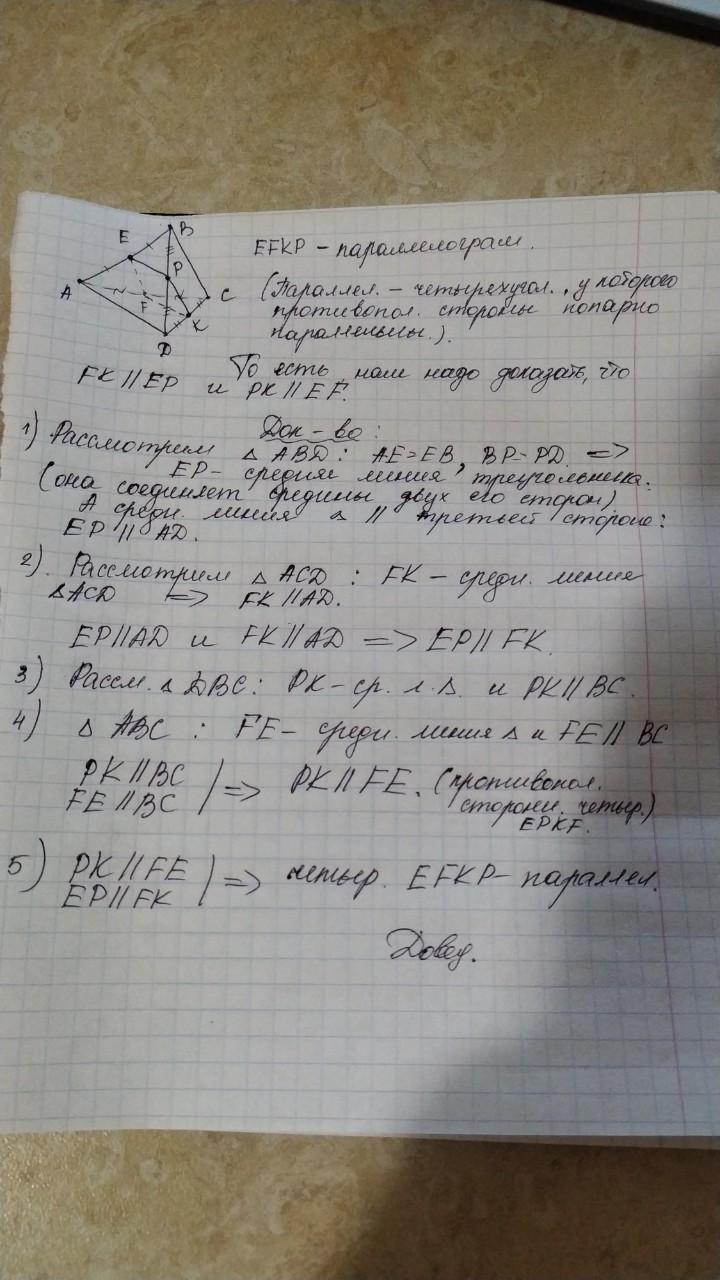 B
E
P
A
C
F
K
D
EFKP - параллелограм.
(Параллел. - четырехугол., у которого
противопол. стороны попарно
параллельны.).
То есть нам надо доказать, что
FK // EP и PK // EF.
Док-во:
1) Рассмотрим △ ABD: AE=EB, BP=PD. =>
EP- средняя линия треугольника.
(она соединяет средины двух его сторон)
А средн. линия △ // третьей стороне:
EP // AD.
2). Рассмотрим △ ACD : FK - средн. линия
△ACD => FK // AD.
EP//AD и FK//AD => EP// FK.
3) Рассм. △ DBC: PK-ср. л. △. и PK // BC.
4) △ ABC : FE- средн. линия △ и FE // BC
PK // BC
FE // BC | => PK // FE. (противопол.
сторони. четыр.)
EPKF.
5) PK // FE
EP // FK | => четыр. EFKP- параллел.
Довед.